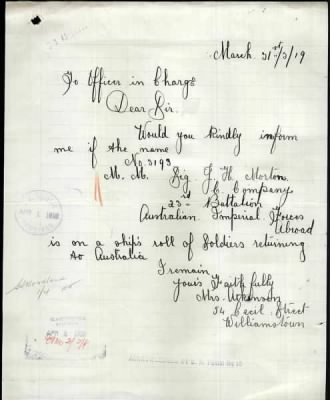 March 31st/3/19
To Officer in Charge
Dear Sir.
Would you kindly inform
me if the name
No. 3193
M. M. Sig J. H. Morton.
C Company
23rd Battalion
Australian Imperial Forces
Abroad
is on a ship's roll of Soldiers returning
to Australia
I remain
yours Faithfully
Mrs.
54 Cecil Street
Williamstown